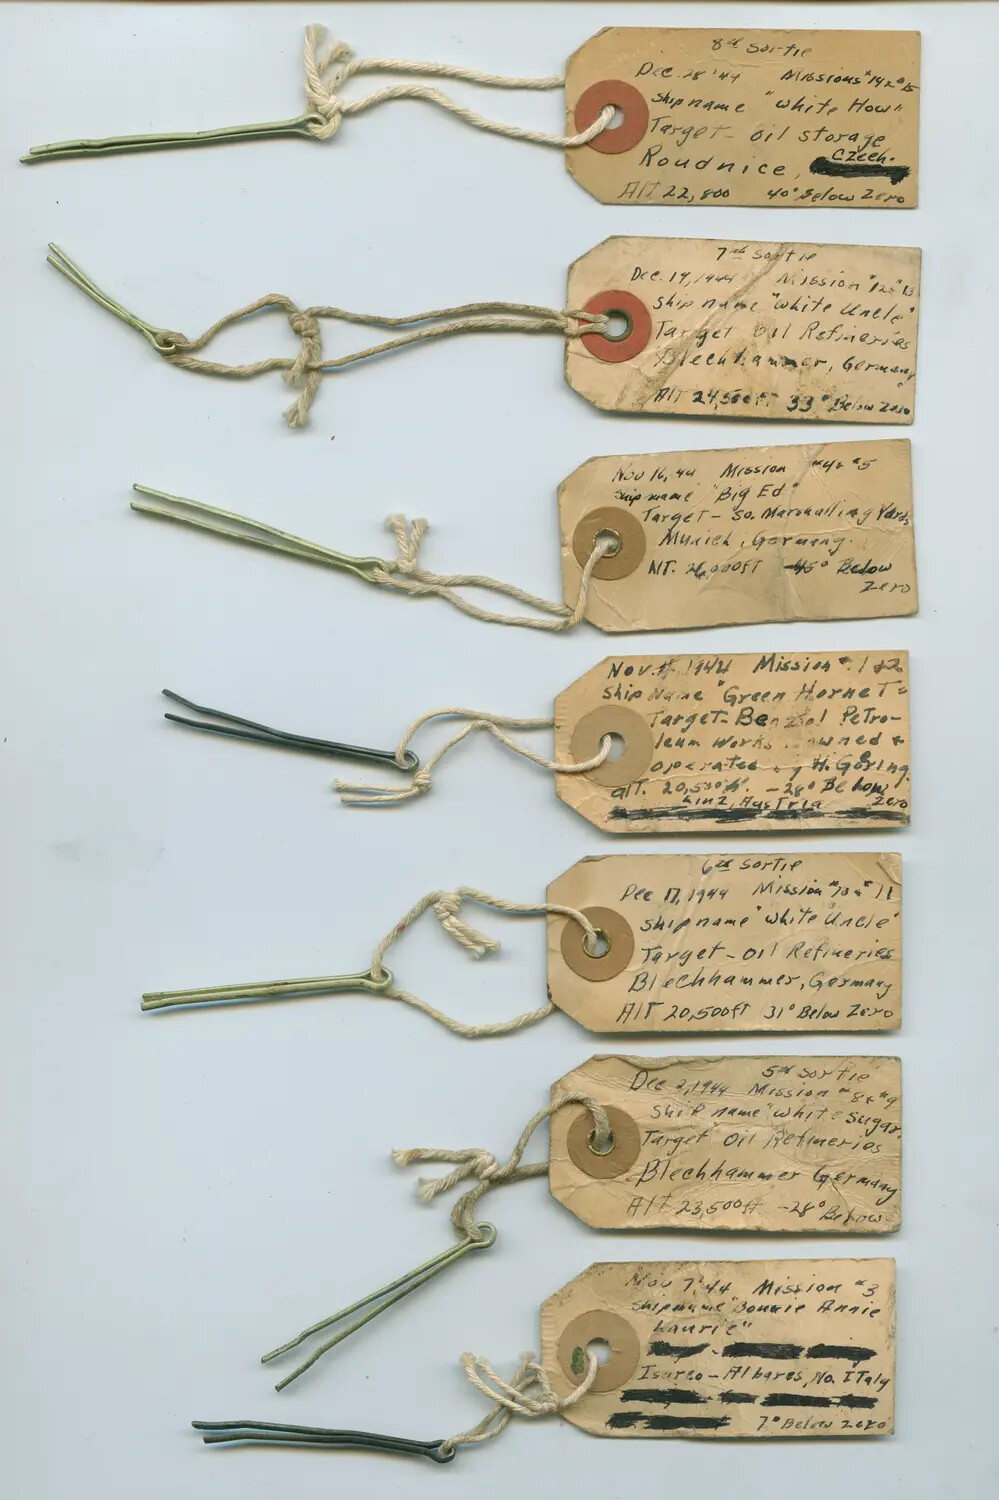 8th Sortie
Dec. 28 '44 Missions #14 & #15
Ship name "White How"
Target - Oil storage
Roudnice, Czech.
Alt 22,800 40° Below Zero
7th Sortie
Dec. 19, 1944 Mission #12 & #13
Ship name "White Uncle"
Target Oil Refineries
Blechhammer, Germany
Alt 24,500 FT 33° Below Zero
Nov 16, 44 Mission #4 & #5
Ship name "Big Ed"
Target - So. Marshalling Yards
Munich, Germany.
Alt. 26,000 FT -45° Below
Zero
Nov. 1944 Mission #1 & 2
Ship Name "Green Hornet"
Target - Benzol Petro-
leum Works owned &
operated by H. Göring.
alt. 20,500 ft. -28° Below
Linz, Austria Zero
6th Sortie
Dec 17, 1944 Mission #10 & #11
Ship name "White Uncle"
Target - Oil Refineries
Blechhammer, Germany
Alt 20,500 ft 31° Below Zero
5th Sortie
Dec 2, 1944 Mission #8 & #9
Ship name "White Sugar"
Target Oil Refineries
Blechhammer Germany
Alt 23,500 ft -28° Below
Nov 7 '44 Mission #3
Ship name "Bonnie Annie
Laurie"
Isarco - Albares, No. Italy
7° Below Zero